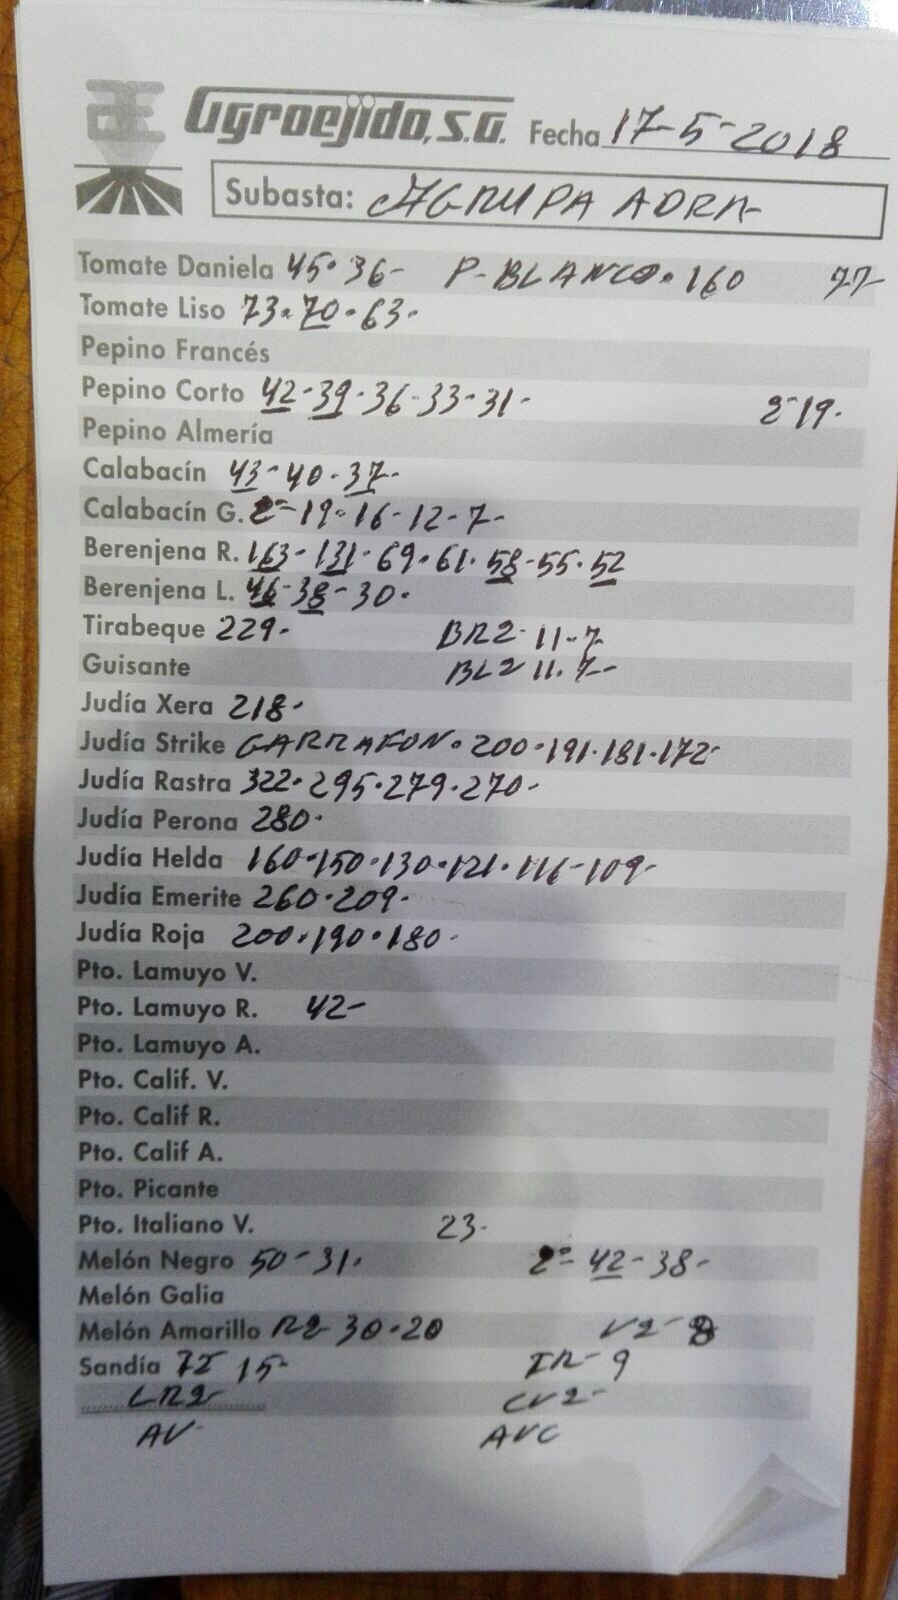 Agroejido, S.A. Fecha 17-5-2018
Subasta: AGRUPA ADRA
Tomate Daniela 45-36- P-BLANCO-160 77-
Tomate Liso 73-70-63-
Pepino Francés
Pepino Corto 42-39-36-33-31- 2-19-
Pepino Almería
Calabacín 43-40-37-
Calabacín G. 2-19-16-12-7-
Berenjena R. 163-131-69-61-58-55-52
Berenjena L. 46-38-30-
Tirabeque 229- BR2 11-7
Guisante BL2 11-7-
Judía Xera 218-
Judía Strike GARRAFON-200-191-181-172-
Judía Rastra 322-295-279-270-
Judía Perona 280-
Judía Helda 160-150-130-121-116-109-
Judía Emerite 260-209-
Judía Roja 200-190-180-
Pto. Lamuyo V.
Pto. Lamuyo R. 42-
Pto. Lamuyo A.
Pto. Calif. V.
Pto. Calif R.
Pto. Calif A.
Pto. Picante
Pto. Italiano V. 23-
Melón Negro 50-31- 2-42-38-
Melón Galia
Melón Amarillo R2 30-20 V2-8
Sandía 15- IR-9
LR2- CV2-
AV- AVC